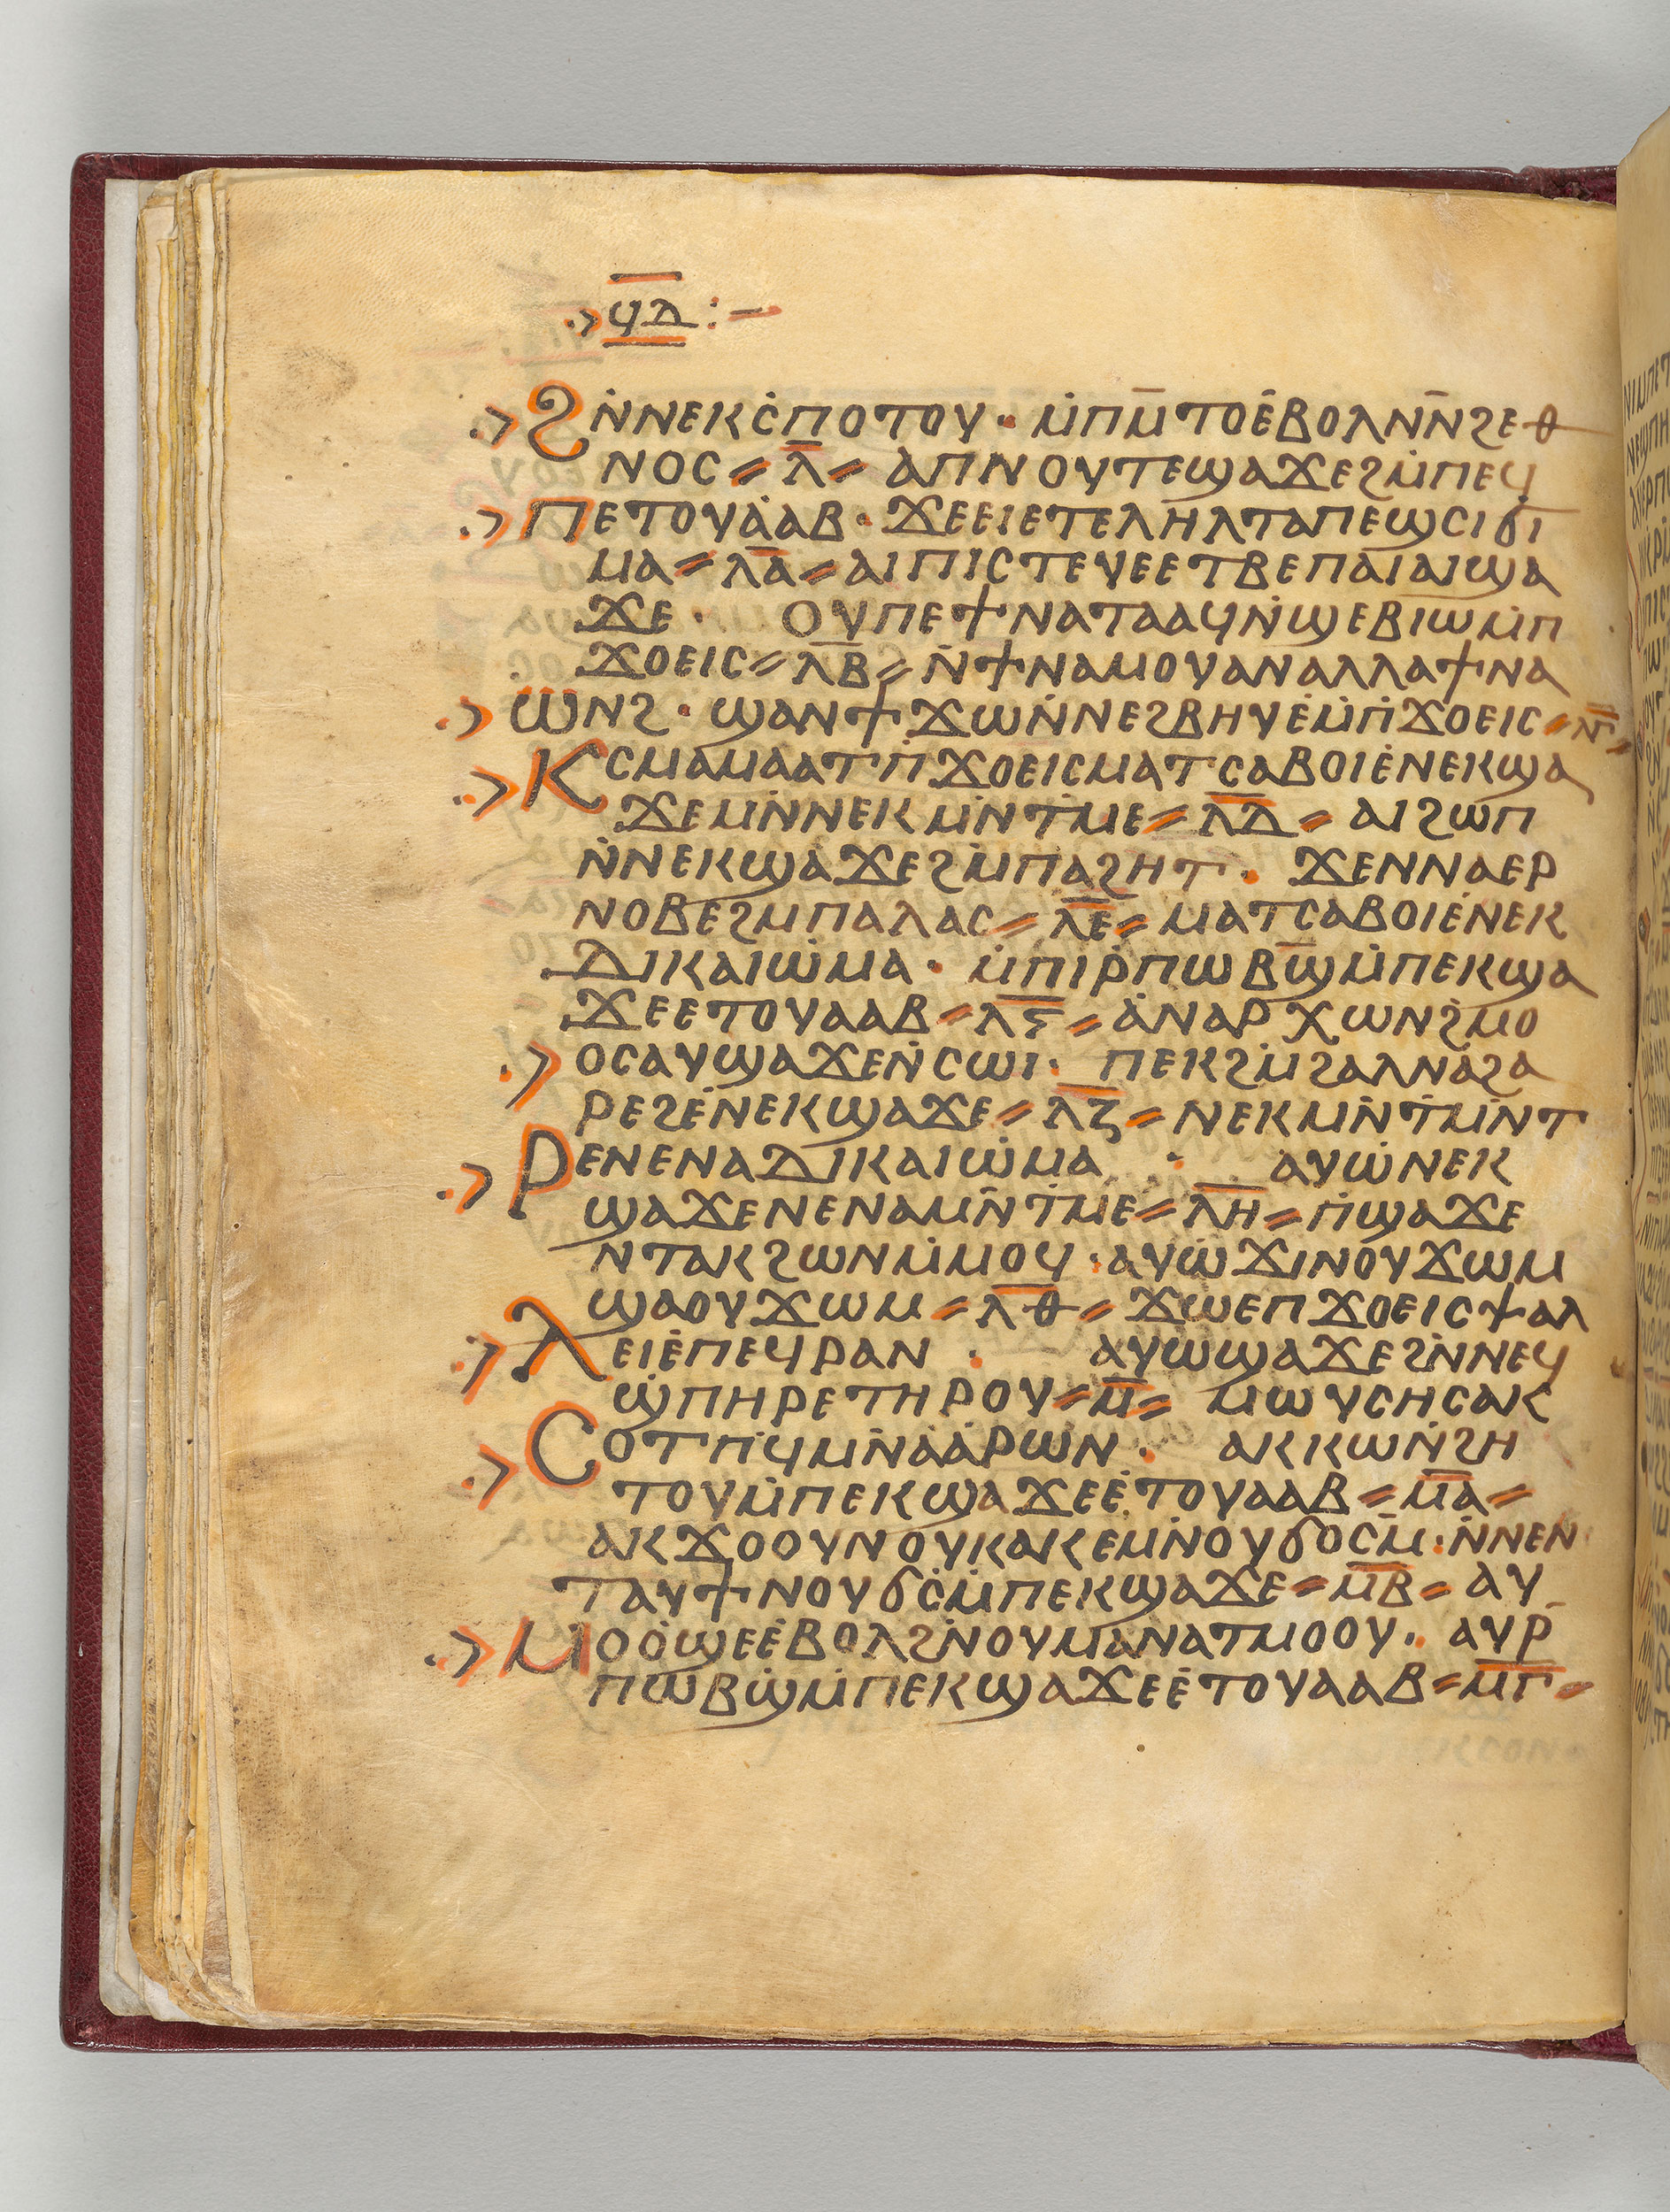 ·> ϥⲇ :–
ϨⲚ̇ⲚⲈⲔⲤ̇ⲠⲞⲦⲞⲨ · Ⲙ̇ⲠⲘ̄ⲦⲞⲈ̇ⲂⲞⲖⲚⲚ̄ϨⲈⲐ
ⲚⲞⲤ⸗ Ⲗ̄ ⸗ ⲀⲠⲚⲞⲨⲦⲈϢⲀϪⲈϨⲘ̇ⲠⲈϤ
·> ⲠⲈⲦⲞⲨⲀ̇ⲀⲂ · ϪⲈⲈⲒⲈⲦⲈⲖⲎⲖⲦⲀⲠⲈϢⲤⲒϬⲒ
ⲘⲀ⸗ ⲖⲀ̄ ⸗ ⲀⲒⲠⲒⲤⲦⲈⲨⲈⲈⲦⲂⲈⲠⲀⲒⲀⲒϢⲀ
ϪⲈ · ⲞⲨⲠⲈϮⲚⲀⲦⲀⲀϤⲚ̇ϢⲈⲂⲒⲰⲘ̇Ⲡ
ϪⲞⲈⲒⲤ⸗ ⲖⲂ̄ ⸗ Ⲛ̇ϮⲚⲀⲘⲞⲨⲀⲚⲀⲖⲖⲀϮⲚⲀ
·> ⲰⲚϨ · ϢⲀⲚϮϪⲰⲚ̇ⲚⲈϨⲂⲎⲨⲈ̇Ⲙ̇Ⲡ̇ϪⲞⲈⲒⲤ⸗ ⲖⲄ̄ ⸗
·> ⲔⲤⲘⲀⲘⲀⲀⲦⲠ̇ϪⲞⲈⲒⲤⲘⲀⲦⲤⲀⲂⲞⲒⲈ̇ⲚⲈⲔϢⲀ
ϪⲈⲘⲚ̇ⲚⲈⲔⲘⲚ̇ⲦⲘⲈ⸗ ⲖⲆ̄ ⸗ ⲀⲒϨⲰⲠ
Ⲛ̇ⲚⲈⲔϢⲀϪⲈϨⲘ̇ⲠⲀϨⲎⲦ · ϪⲈⲚⲚⲀⲈⲢ
ⲚⲞⲂⲈϨⲘⲠⲀⲖⲀⲤ⸗ ⲖⲈ̄ ⸗ ⲘⲀⲦⲤⲀⲂⲞⲒⲈ̇ⲚⲈⲔ
ⲆⲒⲔⲀⲒⲰ̇ⲘⲀ · Ⲙ̇ⲠⲒⲢ̇ⲠⲰⲂϢ̄Ⲙ̇ⲠⲈⲔϢⲀ
ϪⲈⲈⲦⲞⲨⲀⲀⲂ⸗ Ⲗⲋ̄ ⸗ Ⲁ̇ⲚⲀⲢⲬⲰⲚϨ̇ⲘⲞ
·> ⲞⲤⲀⲨϢⲀϪⲈⲚ̇ⲤⲰⲒ · ⲠⲈⲔϨⲘ̇ϨⲀⲖⲚⲀ̇ϨⲀ
ⲢⲈϨⲈ̇ⲚⲈⲔϢⲀϪⲈ⸗ ⲖⲌ̄ ⸗ ⲚⲈⲔⲘⲚ̇ⲦⲘⲚ̇Ⲧ
·> ⲢⲈⲚⲈⲚⲀⲆⲒⲔⲀⲒⲰ̇ⲘⲀ · ⲀⲨⲰ̇ⲚⲈⲔ
ϢⲀϪⲈⲚⲈⲚⲀⲘⲚ̄ⲦⲘⲈ⸗ ⲖⲎ̄ ⸗ Ⲡ̇ϢⲀϪⲈ
ⲚⲦⲀⲔϨⲰⲚⲘ̇ⲘⲞϤ · ⲀⲨⲰ̇ϪⲒⲚⲞⲨϪⲰⲘ
ϢⲀⲞⲨϪⲰⲘ⸗ ⲖⲐ̄ ⸗ ϪⲰⲈⲠϪⲞⲈⲒⲤϮⲀⲖ
·> ⲖⲈⲒⲈ̇ⲠⲈϤⲢⲀⲚ · ⲀⲨⲰ̇ϢⲀϪⲈϨⲚ̇ⲚⲈϤ
Ϣ̇ⲠⲎⲢⲈⲦⲎⲢⲞⲨ⸗ Ⲙ̄ ⸗ ⲘⲰⲨⲤⲎⲤⲀⲔ
·> ⲤⲞⲦⲠ̇ϤⲘⲚ̇ⲀⲀ̇ⲢⲰⲚ · ⲀⲔⲔⲰⲚ̇ϨⲎ
ⲦⲞⲨⲘ̇ⲠⲈⲔϢⲀϪⲈⲈ̇ⲦⲞⲨⲀⲀⲂ⸗ ⲘⲀ̄ ⸗
ⲀⲔϪⲞⲞⲨⲚⲞⲨⲔⲀⲔⲈⲘⲚ̇ⲞⲨϬⲞⲤⲘ̄ · Ⲛ̇ⲚⲈⲚ
ⲦⲀⲨϮⲚⲞⲨϬⲤ̇Ⲙ̇ⲠⲈⲔϢⲀϪⲈ⸗ ⲘⲂ̄ ⸗ ⲀⲨ
·> ⲘⲞⲞ̇ϢⲈⲈ̇ⲂⲞⲖϨⲚ̇ⲞⲨⲘⲀⲚⲀⲦⲘⲞⲞⲨ · ⲀⲨⲢ̄
ⲠⲰⲂϢ̇Ⲙ̇ⲠⲈⲔϢⲀϪⲈⲈ̇ⲦⲞⲨⲀⲀⲂ⸗ ⲘⲄ̄ ⸗